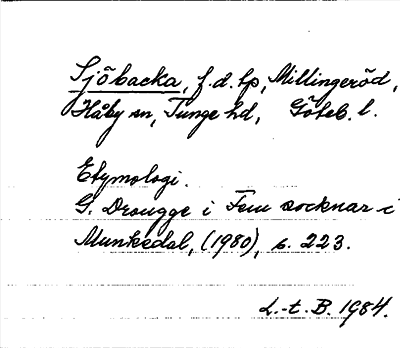 Sjöbacka, f.d. lp, Millingeröd,
Håby sn, Tunge hd, Göteb. l.
Etymologi.
G. Drougge i Fem socknar i
Munkedal, (1980), s. 223.
L.-t. B. 1984.